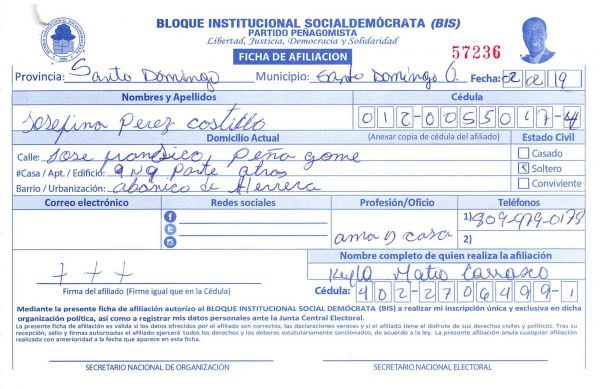 BLOQUE INSTITUCIONAL SOCIALDEMÓCRATA (BIS)
PARTIDO PEÑAGOMISTA
Libertad, Justicia, Democracia y Solidaridad
FICHA DE AFILIACION
57236
Provincia: Santo Domingo Municipio: Santo Domingo O. Fecha: 02 02 19
Nombres y Apellidos Cédula
Josefina Perez Costillo 012-0055017-4
Domicilio Actual (Anexar copia de cédula del afiliado) Estado Civil
Calle: Jose francsico, Peña gome
#Casa / Apt. / Edificio: 9 n 9 Parte atras
Barrio / Urbanización: abanico de Herrera
Casado
Soltero
Conviviente
Correo electrónico Redes sociales Profesión/Oficio Teléfonos
1) 809-979-0178
ama D casa 2)
Nombre completo de quien realiza la afiliación
Keyla Mateo Carrasco
+ + +
Firma del afiliado (Firme igual que en la Cédula) Cédula: 402-2706499-1
Mediante la presente ficha de afiliación autorizo al BLOQUE INSTITUCIONAL SOCIALDEMÓCRATA (BIS) a realizar mi inscripción única y exclusiva en dicha
organización política, así como a registrar mis datos personales ante la Junta Central Electoral.
La presente ficha de afiliación es válida si los datos ofrecidos por el afiliado son correctos, las declaraciones veraces y si el afiliado tiene el disfrute de sus derechos civiles y políticos. Tras su
recepción, sello y firmas autorizadas el afiliado ejercerá todos los derechos y los deberes estatutariamente sancionados, de acuerdo a la ley. La presente afiliación anula cualquier afiliación
realizada con anterioridad a la fecha que aparece en esta ficha.
SECRETARIO NACIONAL DE ORGANIZACIÓN SECRETARIO NACIONAL ELECTORAL